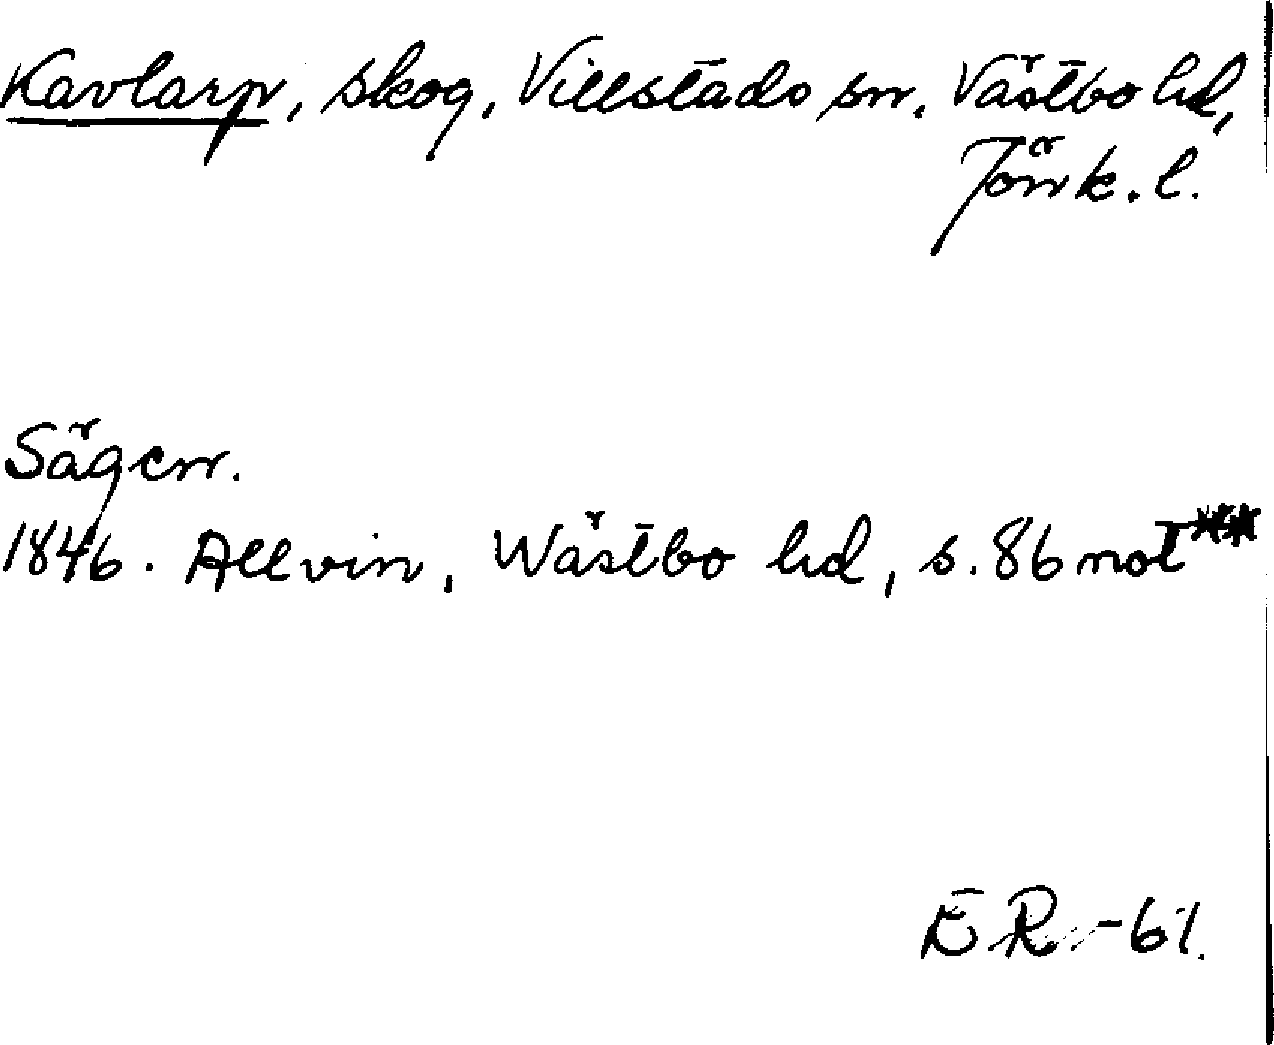 Kavlarp, skog, Villstads sn, Västbo hd,
Jönk. l.
Sägen.
1846. Allvin, Wästbo hd, s. 86 not **
E R -61.